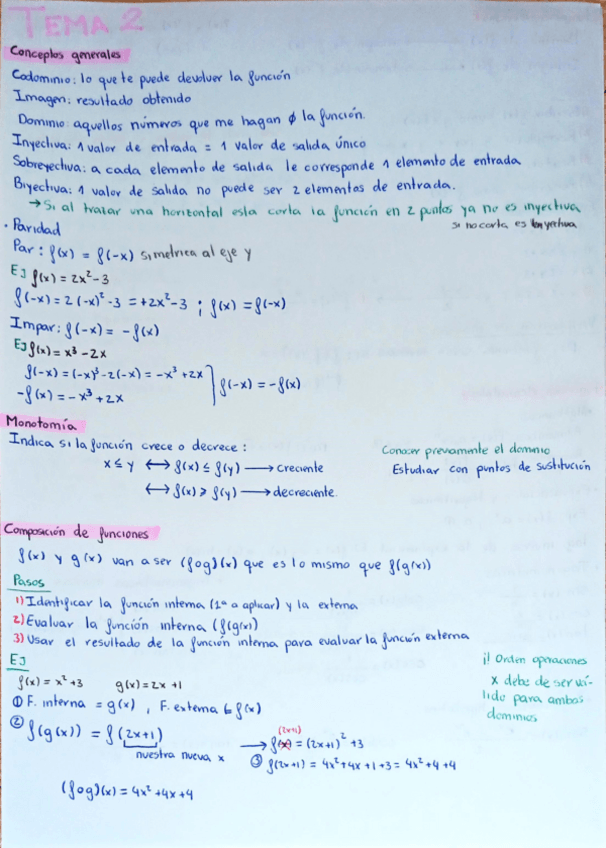 TEMA 2
Conceptos generales
Codominio: lo que te puede devolver la función
Imagen: resultado obtenido
Dominio: aquellos números que me hagan ∅ la función.
Inyectiva: 1 valor de entrada = 1 valor de salida único
Sobreyectiva: a cada elemento de salida le corresponde 1 elemento de entrada
Biyectiva: 1 valor de salida no puede ser 2 elementos de entrada.
→ Si al trazar una horizontal esta corta la función en 2 puntos ya no es inyectiva
si no corta es inyectiva
· Paridad
Par: f(x) = f(-x) simetrica al eje y
EJ f(x) = 2x² - 3
f(-x) = 2(-x)² - 3 = +2x² - 3 ; f(x) = f(-x)
Impar: f(-x) = -f(x)
EJ f(x) = x³ - 2x
f(-x) = (-x)³ - 2(-x) = -x³ + 2x } f(-x) = -f(x)
-f(x) = -x³ + 2x
Monotomía
Indica si la función crece o decrece:
x ≤ y ↔ f(x) ≤ f(y) → creciente
↔ f(x) ≥ f(y) → decreciente.
Conocer previamente el dominio
Estudiar con puntos de sustitución
Composición de funciones
f(x) y g(x) van a ser (fog)(x) que es lo mismo que f(g(x))
Pasos
1) Identificar la función interna (1ª a aplicar) y la externa
2) Evaluar la función interna (f(g(x))
3) Usar el resultado de la función interna para evaluar la función externa
EJ
f(x) = x² + 3 g(x) = 2x + 1
① F. interna = g(x) , F. externa f(x)
② f(g(x)) = f(2x+1)
nuestra nueva x
(2x+1)
→ f(x) = (2x+1)² + 3
③ f(2x+1) = 4x² + 4x + 1 + 3 = 4x² + 4 + 4
(fog)(x) = 4x² + 4x + 4
¡! Orden operaciones
x debe de ser vá-
lido para ambos
dominios